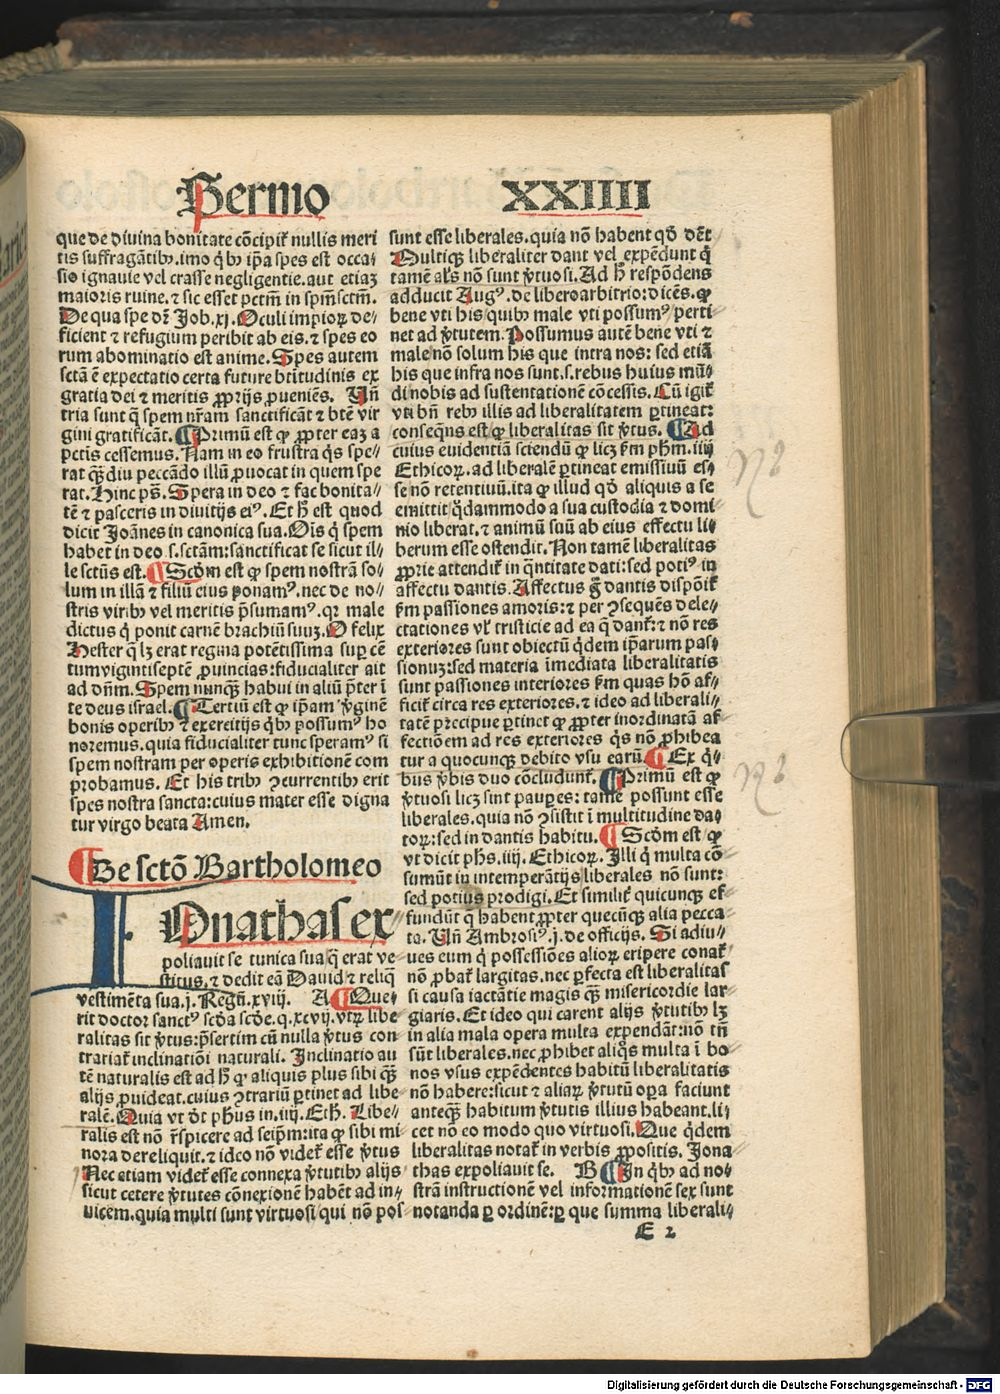 Sermo XXIIII
que de divina bonitate cōcipiť nullis meri
tis suffragātibꝫ. imo qͥbꝫ ip̄a spes est occa⸗
sio ignauie vel crasse negligentie. aut etiaꝫ
maioris ruine. ⁊ sic esset pctm̄ in spm̄ sctm̄.
De qua spe dꝫ Job. xj. Oculi impioꝝ de⸗
ficient ⁊ refugium peribit ab eis. ⁊ spes eo
rum abominatio est anime. Spes autem
sctā ē expectatio certa future btītudinis ex
gratia dei ⁊ meritis ꝓprijs ꝓueniēs. Vn̄
tria sunt q̄ spem nr̄am sanctificāt ⁊ btē vir
gini gratificāt. ¶ Primū est ꝙ ꝓpter eaꝫ a
pctīs cessemus. Nam in eo frustra qͥs spe⸗
rat qͣꝫdiu peccādo illū ꝓuocat in quem spe
rat. Hinc ps̄. Spera in deo ⁊ fac bonita⸗
tē ⁊ pasceris in diuitijs eiꝰ. Et h̄ est quod
dicit Joānes in canonica sua. Oīs qͥ spem
habet in deo .s. sctām: sanctificat se sicut il⸗
le sctūs est. ¶ Scd̄m est ꝙ spem nostrā so⸗
lum in illā ⁊ filiū eius ponamꝰ. nec de no⸗
stris viribꝫ vel meritis p̄sumamꝰ. qꝛ male
dictus qͥ ponit carnē brachiū suuꝫ. O felix
Hester q̄ lꝫ erat regina potētissima suꝑ cē
tumvigintiseptē ꝓuincias: fiducialiter ait
ad dn̄m. Spem nunqͣꝫ habui in aliū p̄ter ī
te deus israel. ¶ Tertiū est ꝙ ip̄am v̓ginē
bonis operibꝫ ⁊ exercitijs qͥbꝫ possumꝰ ho
noremus. quia fiducialiter tunc speramꝰ si
spem nostram per operis exhibitionē com
probamus. Et his tribꝫ ꝯcurrentibꝫ erit
spes nostra sancta: cuius mater esse digna
tur virgo beata Amen.
¶ De sctō Bartholomeo
IOnathas ex⸗
poliauit se tunica sua q̄ erat ve⸗
stitus. ⁊ dedit eā Dauid ⁊ reliq̄
vestimēta sua. j. Regū. xviij. A ¶ Que⸗
rit doctor sanctꝰ scd̄a scd̄e. q. xcvij. vtꝝ libe
ralitas sit v̓tus: p̄sertim cū nulla v̓tus con
trariať inclinatiōi naturali. Inclinatio au
tē naturalis est ad h̄ ꝙ aliquis plus sibi qͣꝫ
alijs ꝓuideat. cuius ꝯtrariū ꝑtinet ad libe
ralē. Quia vt dꝫ ph̄us in. iiij. Eth̄. Libe⸗
ralis est nō r̄spicere ad seip̄m: ita ꝙ sibi mi⸗
nora dereliquit. ⁊ ideo nō videť esse v̓tus
Nec etiam videť esse connexa v̓tutibꝫ alijs
sicut cetere v̓tutes cōnexionē habēt ad in⸗
uicem. quia multi sunt virtuosi qui nō pos⸗
sunt esse liberales. quia nō habent qd̄ dēt
Multiqꝫ liberaliter dant vel expēdunt qͥ
tamē als̄ nō sunt v̓tuosi. Ad h̄ respōdens
adducit Augꝰ. de libero arbitrio: dicēs. ꝙ
bene vti his quibꝫ male vti possumꝰ perti⸗
net ad v̓tutem. Possumus autē bene vti ⁊
male nō solum his que intra nos: sed etiā
his que infra nos sunt .s. rebus huius mū⸗
di nobis ad sustentationē cōcessis. Cū igiť
vti bn̄ rebꝫ illis ad liberalitatem ꝑtineat:
conseqn̄s est ꝙ liberalitas sit v̓tus. ¶ Ad
cuius euidentiā sciendū ꝙ licꝫ ẜm ph̄m. iiij
Ethicoꝝ. ad liberalē ꝑtineat emissiuū es⸗
se nō retentiuū. ita ꝙ illud qd̄ aliquis a se
emittit qͦdammodo a sua custodia ⁊ domi⸗
nio liberat. ⁊ animū suū ab eius effectu li⸗
berum esse ostendit. Non tamē liberalitas
ꝓprie attendiť in qͣntitate dati: sed potiꝰ in
affectu dantis. Affectus g̊ dantis dispōiť
ẜm passiones amoris: ⁊ per ꝯsequēs dele⸗
ctationes vl̓ tristicie ad ea q̄ danť: ⁊ nō res
exteriores sunt obiectū qͥdem ip̄arum pas⸗
sionuꝫ: sed materia īmediata liberalitatis
sunt passiones interiores ẜm quas hō af⸗
ficiť circa res exteriores. ⁊ ideo ad liberali⸗
tatē precipue ꝑtinet ꝙ ꝓpter inordinatā af⸗
fectiōem ad res exteriores qͥs nō ꝓhibea
tur a quocunqꝫ debito vsu earū. ¶ Ex qͥ⸗
bus v̓bis duo cōcludunť. ¶ Primū est ꝙ
v̓tuosi licꝫ sint pauꝑes: tamē possunt esse
liberales. quia nō ꝯsistit ī multitudine da⸗
toꝝ: sed in dantis habitu. ¶ Scd̄m est ꝙ
vt dicit ph̄s. iiij. Ethicoꝝ. Illi qͥ multa cō⸗
sumūt in intemperātijs liberales nō sunt:
sed potius prodigi. Et similiť quicunqꝫ ef⸗
fundūt q̄ habent ꝓpter quecūqꝫ alia pecca⸗
ta. Vn̄ Ambrosiꝰ. j. de officijs. Si adiu⸗
ues eum qͥ possessiōes alioꝝ eripere conať
nō ꝓbať largitas. nec ꝑfecta est liberalitas
si causa iactātie magis qͣꝫ misericordie lar⸗
giaris. Et ideo qui carent alijs v̓tutibꝫ lꝫ
in alia mala opera multa expendāt: nō tn̄
sūt liberales. nec ꝓhibet aliqͦs multa ī bo⸗
nos vsus expēdentes habitū liberalitatis
nō habere: sicut ⁊ aliaꝝ v̓tutū oꝑa faciunt
anteqͣꝫ habitum v̓tutis illius habeant. li⸗
cet nō eo modo quo virtuosi. Que qͥdem
liberalitas notať in verbis ꝓpositis. Jona
thas expoliauit se. B ¶ In qͥbꝫ ad no⸗
strā instructionē vel informationē sex sunt
notanda ꝑ ordinē: ꝑ que summa liberali⸗
E 2
Digitalisierung gefördert durch die Deutsche Forschungsgemeinschaft - DFG